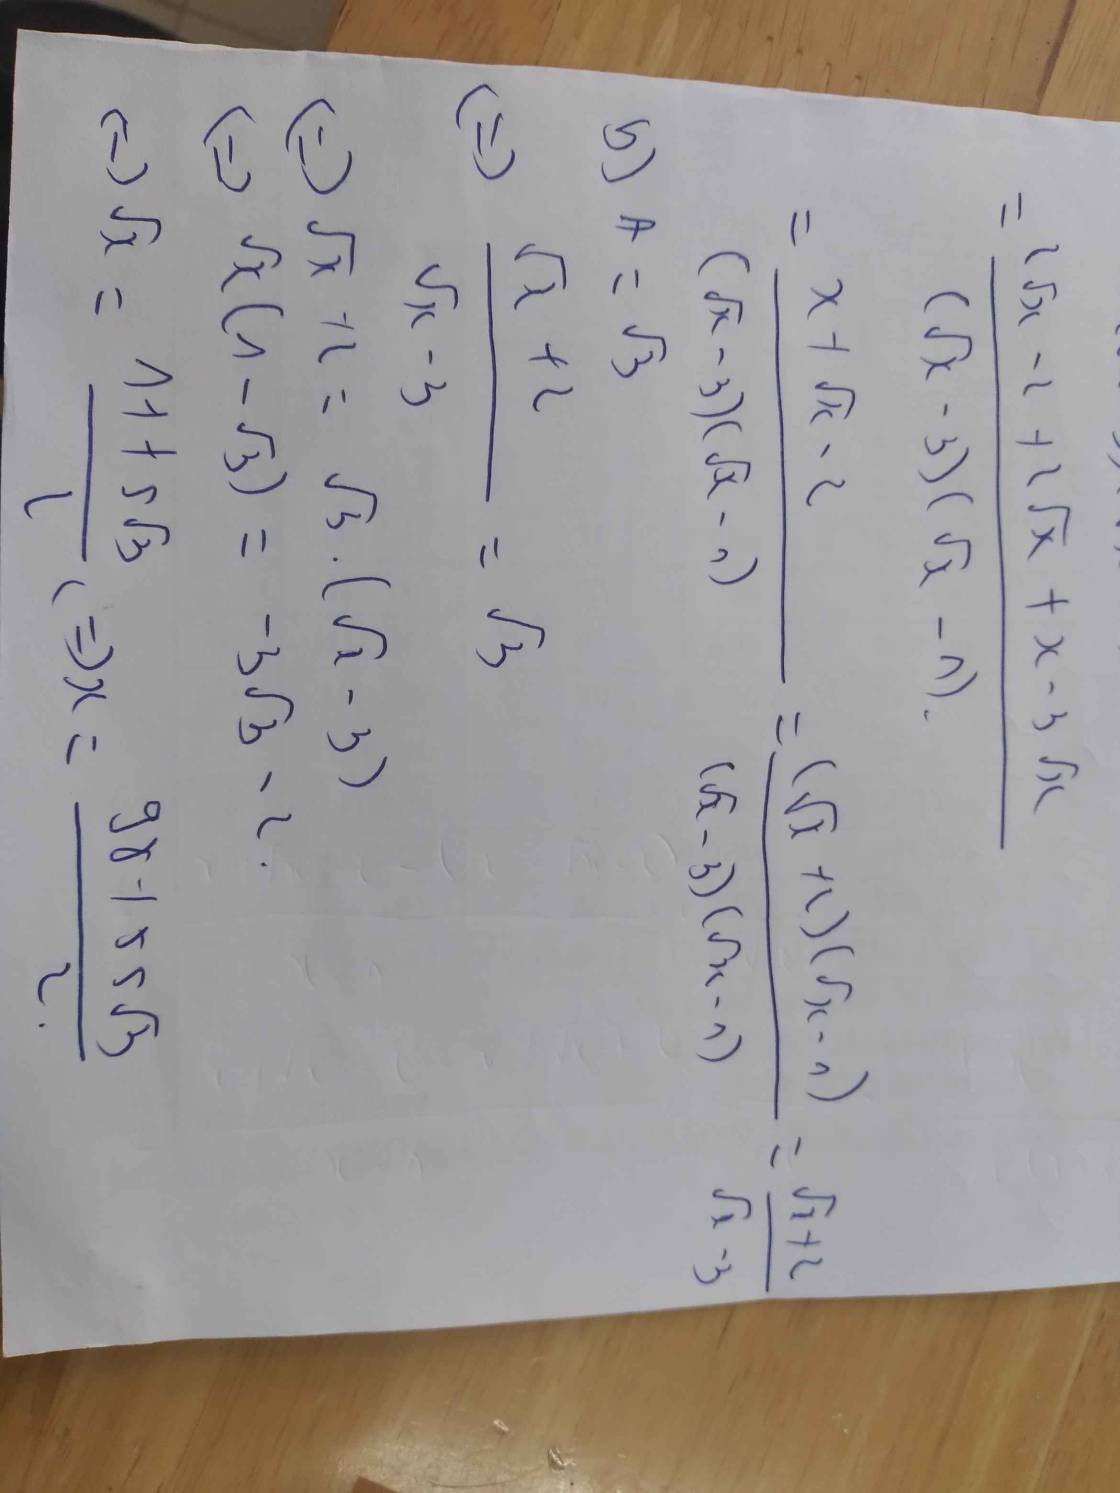 = 2√x - 2 + 2√x + x - 3√x / (√x - 3)(√x - 1).
= x + √x - 2 / (√x - 3)(√x - 1) = (√x + 2)(√x - 1) / (√x - 3)(√x - 1) = √x + 2 / √x - 3
b) A = √3
(=) √x + 2 / √x - 3 = √3
(=) √x + 2 = √3 . (√x - 3)
(=) √x (1 - √3) = -3√3 - 2.
(=) √x = 11 + 5√3 / 2 (=) x =